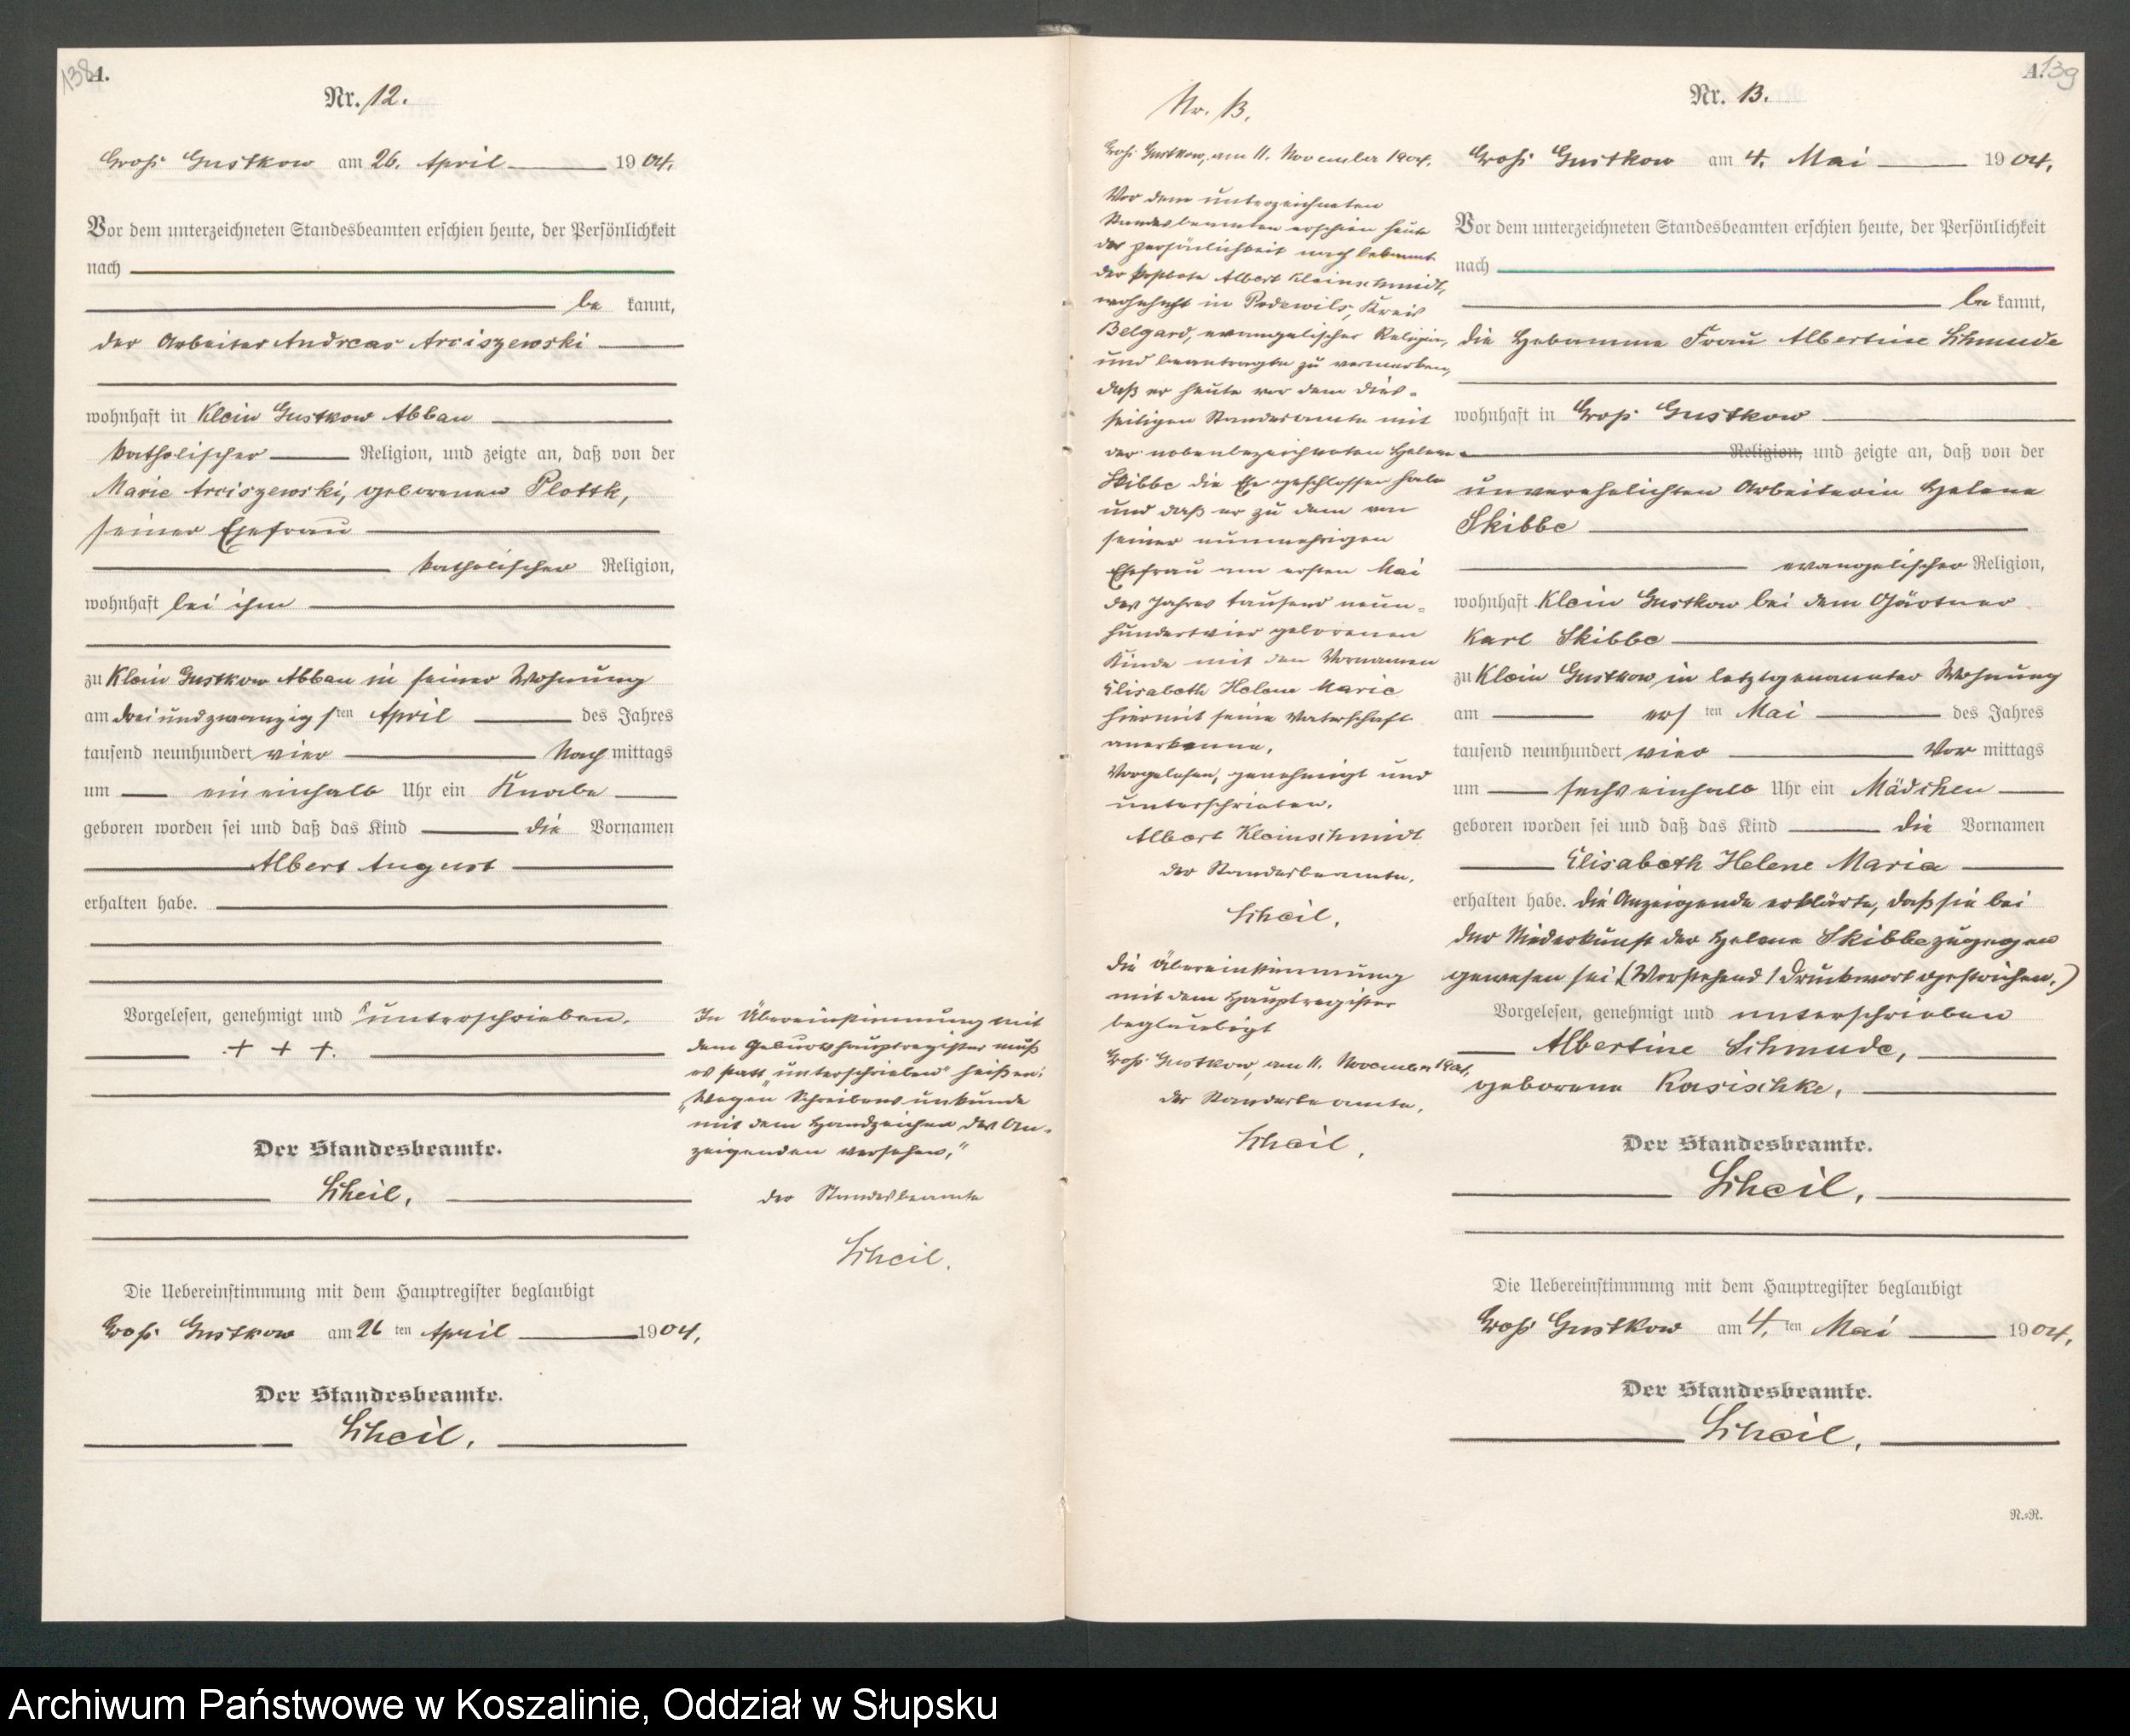 138
A.
Nr. 12.
Groß Gustkow am 26. April 1904.
Vor dem unterzeichneten Standesbeamten erschien heute, der Persönlichkeit
nach
be kannt,
der Arbeiter Andreas Arciszewski
wohnhaft in Klein Gustkow Abbau
katholischer Religion, und zeigte an, daß von der
Marie Arciszewski, geborenen Plottk,
seiner Ehefrau
katholischer Religion,
wohnhaft bei ihm
zu Klein Gustkow Abbau in seiner Wohnung
am dreiundzwanzigsten April des Jahres
tausend neunhundert vier Nach mittags
um ein einhalb Uhr ein Knabe
geboren worden sei und daß das Kind die Vornamen
Albert August
erhalten habe.
Vorgelesen, genehmigt und unterschrieben.
+ + +.
Der Standesbeamte.
Scheil.
Die Uebereinstimmung mit dem Hauptregister beglaubigt
Groß Gustkow am 26 ten April 1904.
Der Standesbeamte.
Scheil.
In Übereinstimmung mit
dem Geburtshauptregister muß
es statt „unterschrieben" heißen:
„Wegen Schreibensunkunde
mit dem Handzeichen des An-
zeigenden versehen."
Der Standesbeamte
Scheil.
Nr. 13.
Groß Gustkow, am 11. November 1904.
Vor dem unterzeichneten
Standesbeamten erschien heute
der Persönlichkeit nach bekannt
der Postbote Albert Kleinschmidt,
wohnhaft in Podewils, Kreis
Belgard, evangelischer Religion,
und beantragte zu vermerken,
daß er heute vor dem dies-
seitigen Standesamte mit
der nebenbezeichneten Helene
Skibbe die Ehe geschlossen habe
und daß er zu dem von
seiner nunmehrigen
Ehefrau am ersten Mai
des Jahres tausend neun-
hundertvier geborenen
Kinde mit den Vornamen
Elisabeth Helene Marie
hiermit seine Vaterschaft
anerkenne.
Vorgelesen, genehmigt und
unterschrieben.
Albert Kleinschmidt
Der Standesbeamte.
Scheil.
Die Übereinstimmung
mit dem Hauptregister
beglaubigt
Groß Gustkow, am 11. November 1904.
Der Standesbeamte.
Scheil.
A.
139
Nr. 13.
Groß Gustkow am 4. Mai 1904.
Vor dem unterzeichneten Standesbeamten erschien heute, der Persönlichkeit
nach
be kannt,
die Hebamme Frau Albertine Schmude
wohnhaft in Groß Gustkow
Religion, und zeigte an, daß von der
unverehelichten Arbeiterin Helene
Skibbe
evangelischer Religion,
wohnhaft Klein Gustkow bei dem Gärtner
Karl Skibbe
zu Klein Gustkow, in letztgenannter Wohnung
am ers ten Mai des Jahres
tausend neunhundert vier Vor mittags
um sechs einhalb Uhr ein Mädchen
geboren worden sei und daß das Kind die Vornamen
Elisabeth Helene Maria
erhalten habe. Die Anzeigende erklärte, daß sie bei
der Niederkunft der Helene Skibbe zugegen
gewesen sei. (Vorstehend 1 Druckwort gestrichen.)
Vorgelesen, genehmigt und unterschrieben
Albertine Schmude,
geborene Kasischke.
Der Standesbeamte.
Scheil.
Die Uebereinstimmung mit dem Hauptregister beglaubigt
Groß Gustkow am 4. ten Mai 1904.
Der Standesbeamte.
Scheil.
R.=R.
Archiwum Państwowe w Koszalinie, Oddział w Słupsku